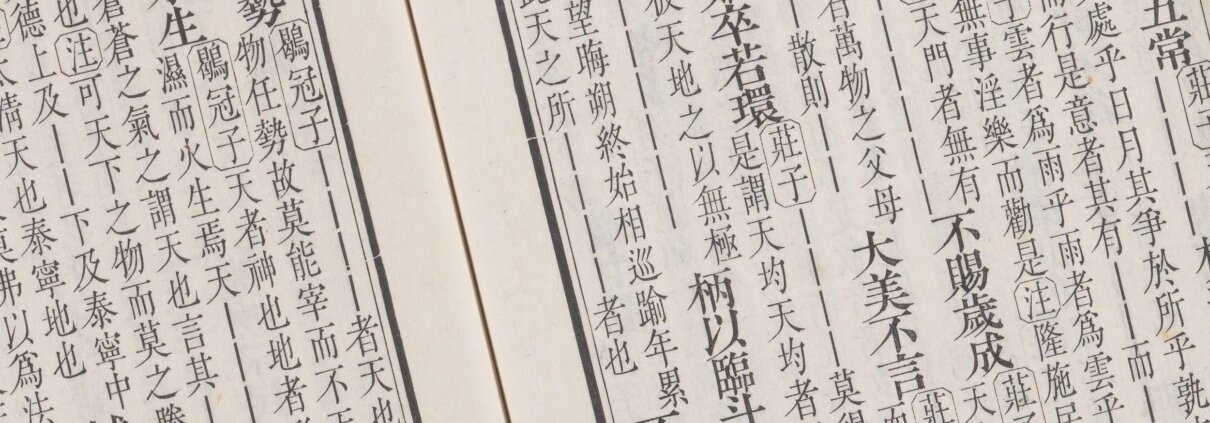 五常 莊子
處乎日月其爭於所乎孰
而行是意者其有 而
子雲者爲雨乎雨者爲雲乎
無事淫樂而勸是 注 隆施居
天門者無有 不賜歲成 莊子
天
有萬物之父母 大美不言 莊
散則 莫得
卒若環 莊子
是謂天均天均者
彼天地之以無極 柄以臨斗
望晦朔終始相巡踰年累
此天之所 者也
勢 鶡冠子 者天也
物任勢故莫能宰而不天
鶡冠子 天者神也地者
生 濕而火生焉天
蒼蒼之氣之謂天也言其
也 注 可天下之物而莫之勝
德上及 下及泰寧中
太清天也泰寧地也
莫弗以爲法